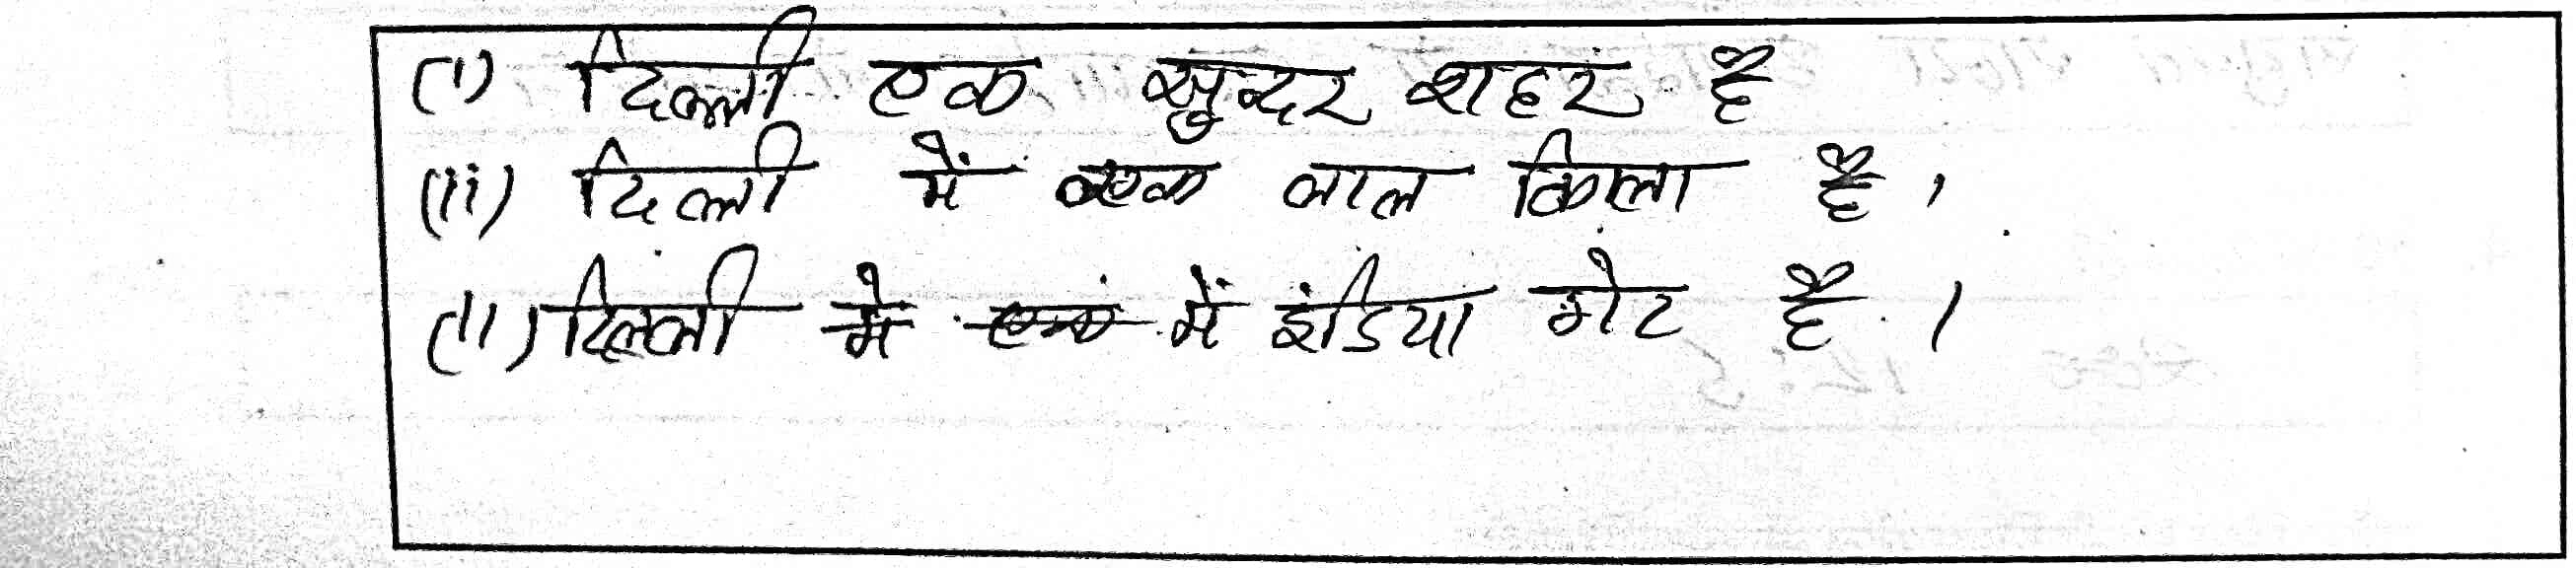 (i) दिल्ली एक सुन्दर शहर है
(ii) दिल्ली में एक लाल किला है ।
(ii) दिल्ली में इंडिया गेट है ।